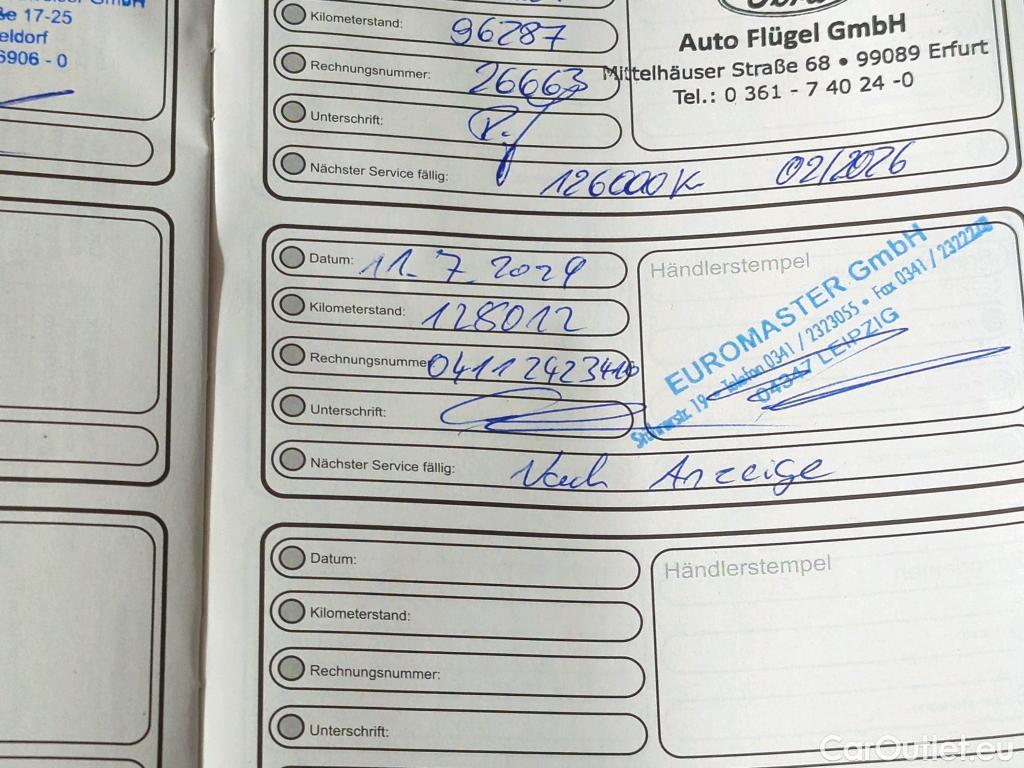 GmbH
17-25
eldorf
6906 - 0
Kilometerstand: 96287
Auto Flügel GmbH
Mittelhäuser Straße 68 • 99089 Erfurt
Rechnungsnummer: 26663
Tel.: 0 361 - 7 40 24 -0
Unterschrift:
Nächster Service fällig: 126000K 02/2026
Datum: 11.7.2024
Händlerstempel
Kilometerstand: 128012
EUROMASTER GmbH
Telefon 0341 / 2323055 • Fax 0341 / 2322228
04347 LEIPZIG
Rechnungsnummer
Unterschrift:
Nächster Service fällig: Nach Anzeige
Datum:
Händlerstempel
Kilometerstand:
Rechnungsnummer:
Unterschrift:
CarOutlet.eu